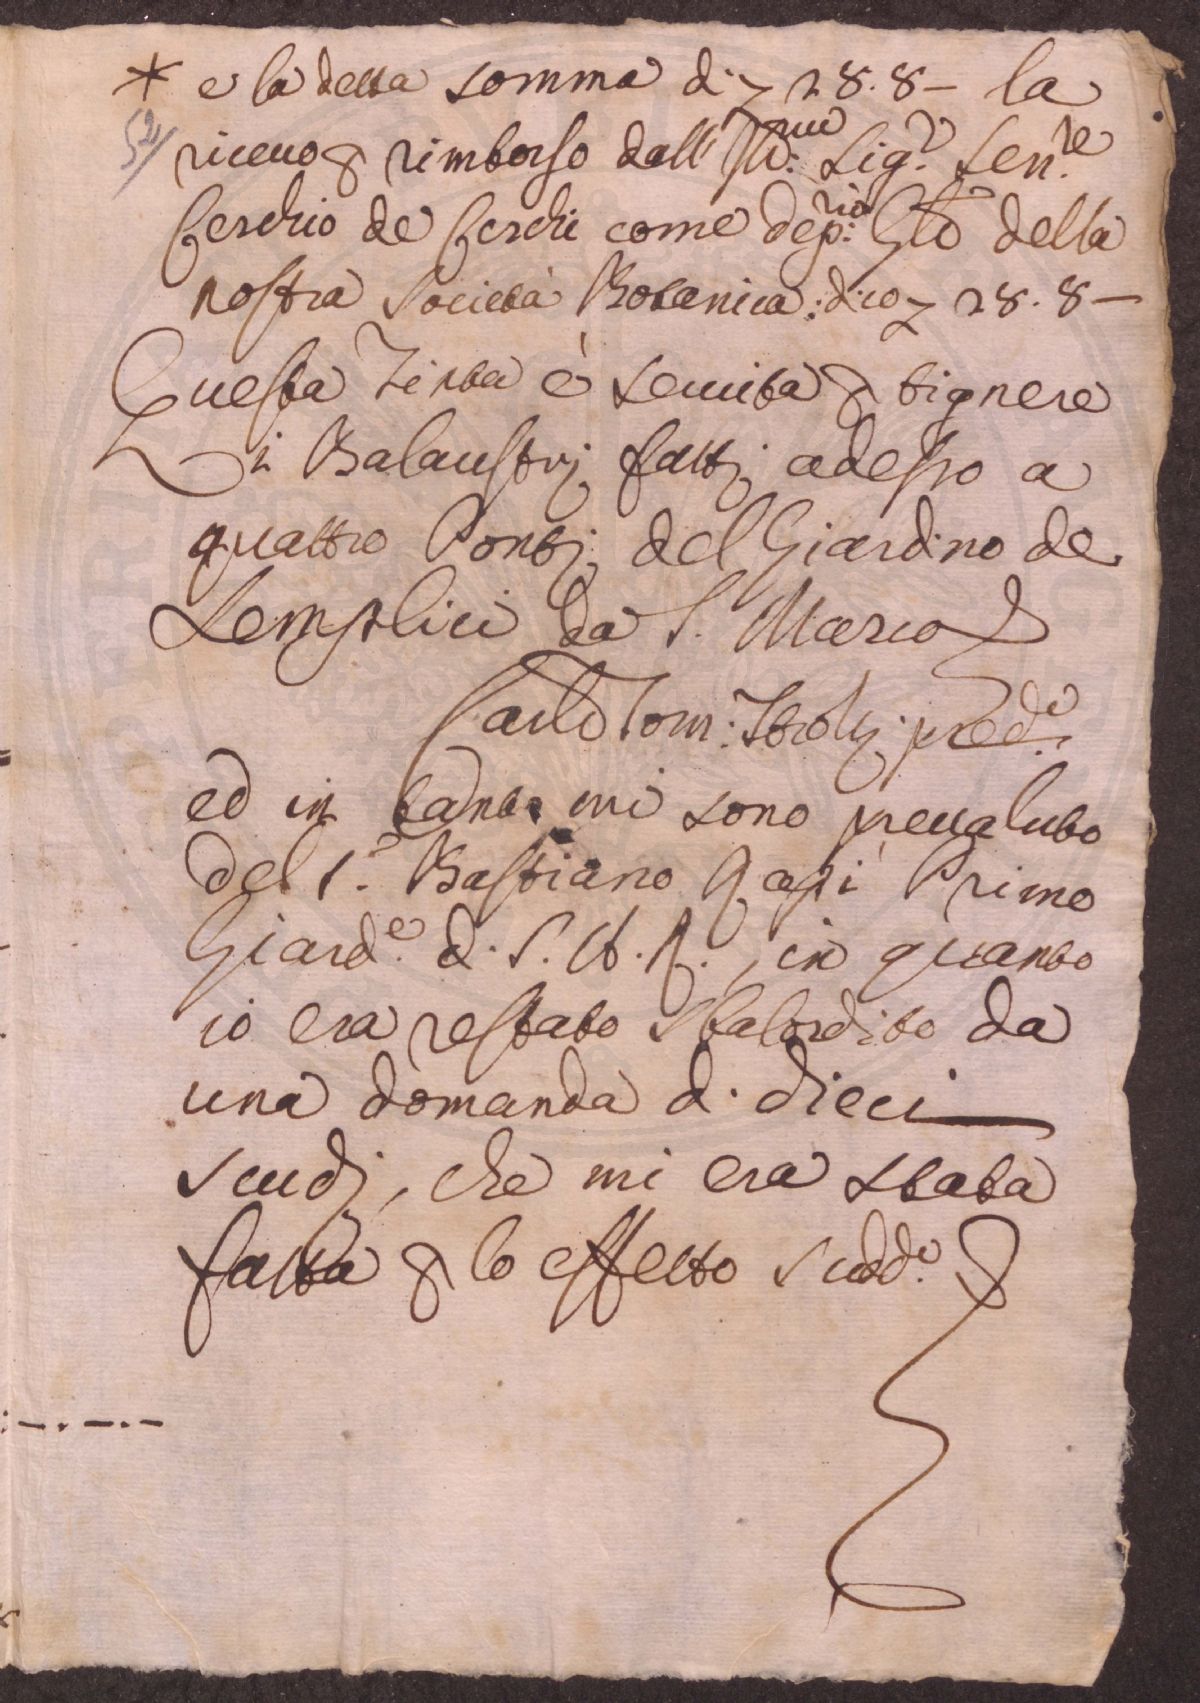 * e la detta somma di 28. 8 – la
52/
ricevo p rimborso dall' Ill:mo Sig.r Sen.re
Cerchio de Cerchi come dep:rio Gle della
nostra Società Botanica: dico 28. 8 –
Questa Tinta è servita p tignere
i Balaustrj fattj adesso a
quattro Pontj del Giardino de
Semplici da S. Marco
Carlo Tom: Strozzj pred.o
ed in tanto mi sono prevaluto
del S.r Bastiano Rapi Primo
Giard.e d. S. A. R., in quanto
io era restato sbalordito da
una domanda di dieci
scudj, che mi era stata
fatta p lo effetto sudd.o